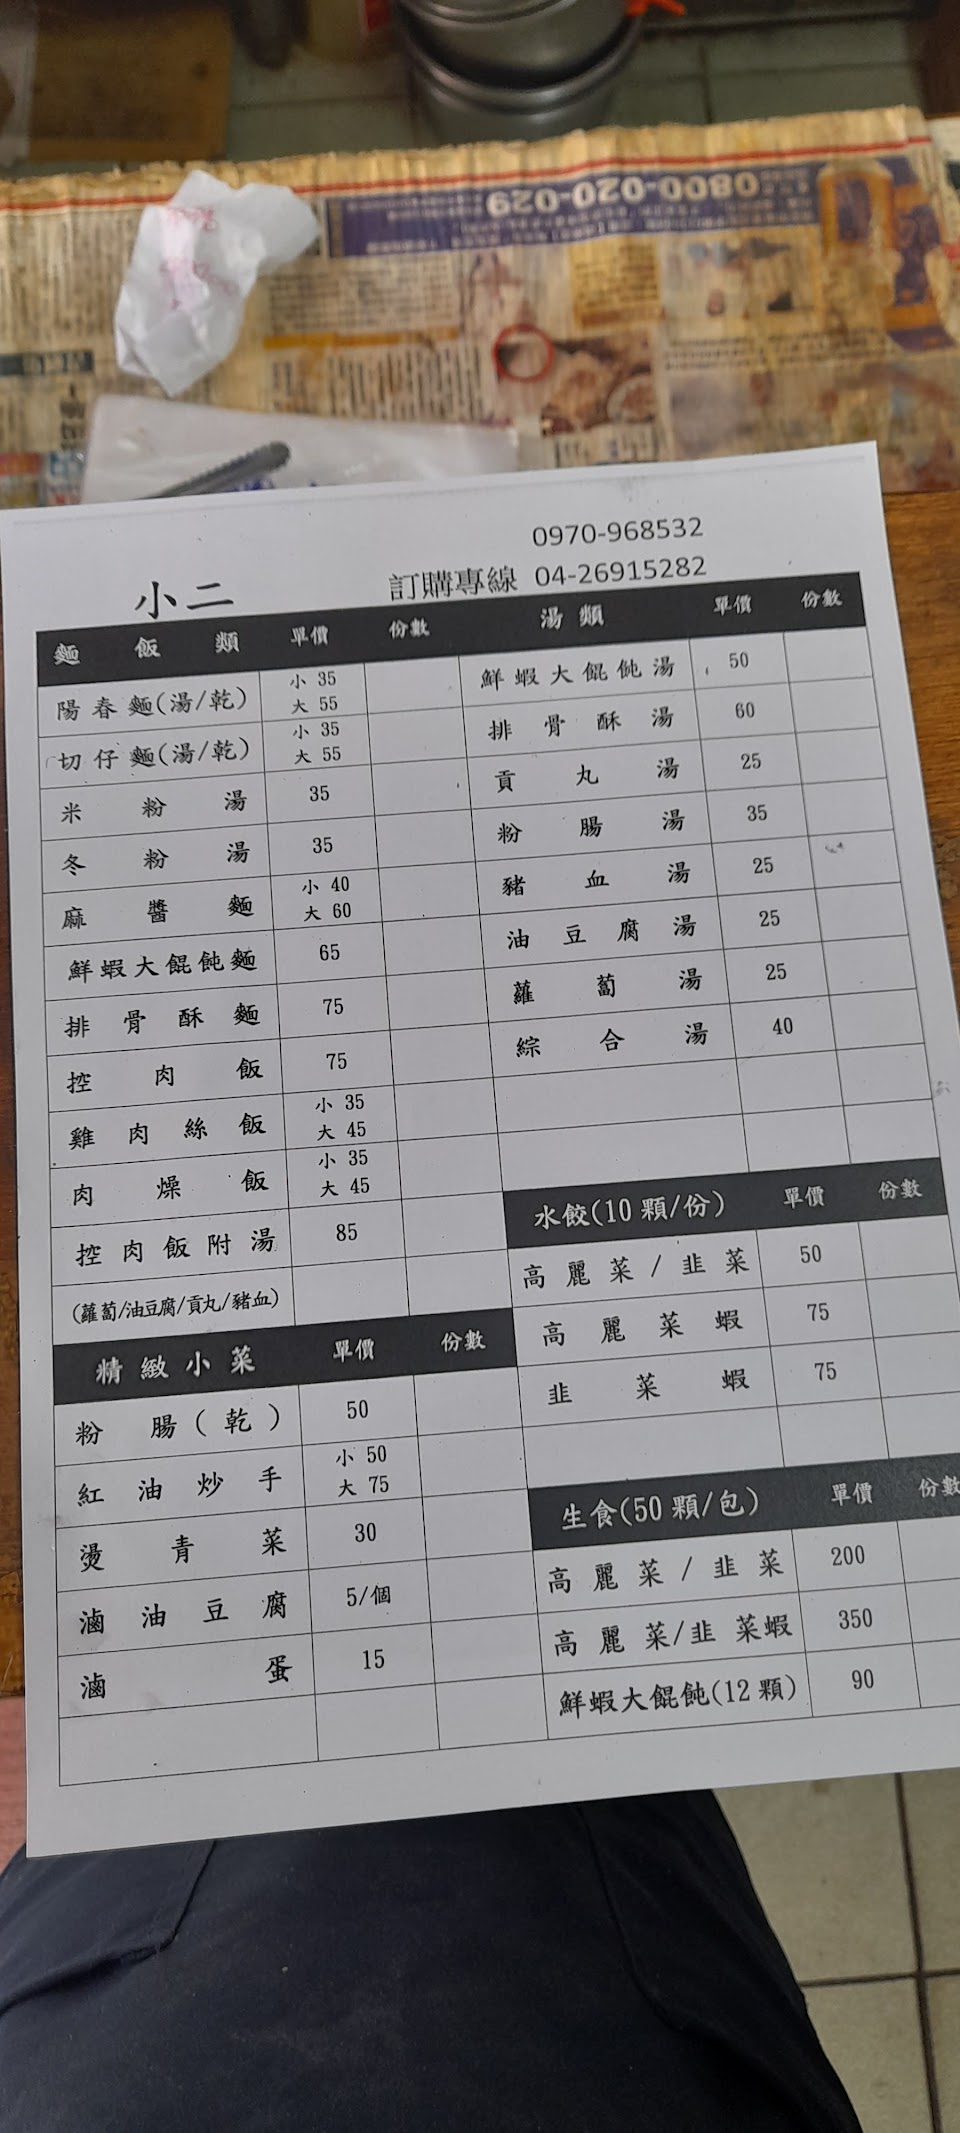 0800-020-029
0970-968532
小二 訂購專線 04-26915282
麵飯類 單價 份數
陽春麵(湯/乾) 小 35 大 55
切仔麵(湯/乾) 小 35 大 55
米粉湯 35
冬粉湯 35
麻醬麵 小 40 大 60
鮮蝦大餛飩麵 65
排骨酥麵 75
控肉飯 75
雞肉絲飯 小 35 大 45
肉燥飯 小 35 大 45
控肉飯附湯 85
(蘿蔔/油豆腐/貢丸/豬血)
精緻小菜 單價 份數
粉腸(乾) 50
紅油炒手 小 50 大 75
燙青菜 30
滷油豆腐 5/個
滷蛋 15
湯類 單價 份數
鮮蝦大餛飩湯 50
排骨酥湯 60
貢丸湯 25
粉腸湯 35
豬血湯 25
油豆腐湯 25
蘿蔔湯 25
綜合湯 40
水餃(10顆/份) 單價 份數
高麗菜/韭菜 50
高麗菜蝦 75
韭菜蝦 75
生食(50顆/包) 單價 份數
高麗菜/韭菜 200
高麗菜/韭菜蝦 350
鮮蝦大餛飩(12顆) 90